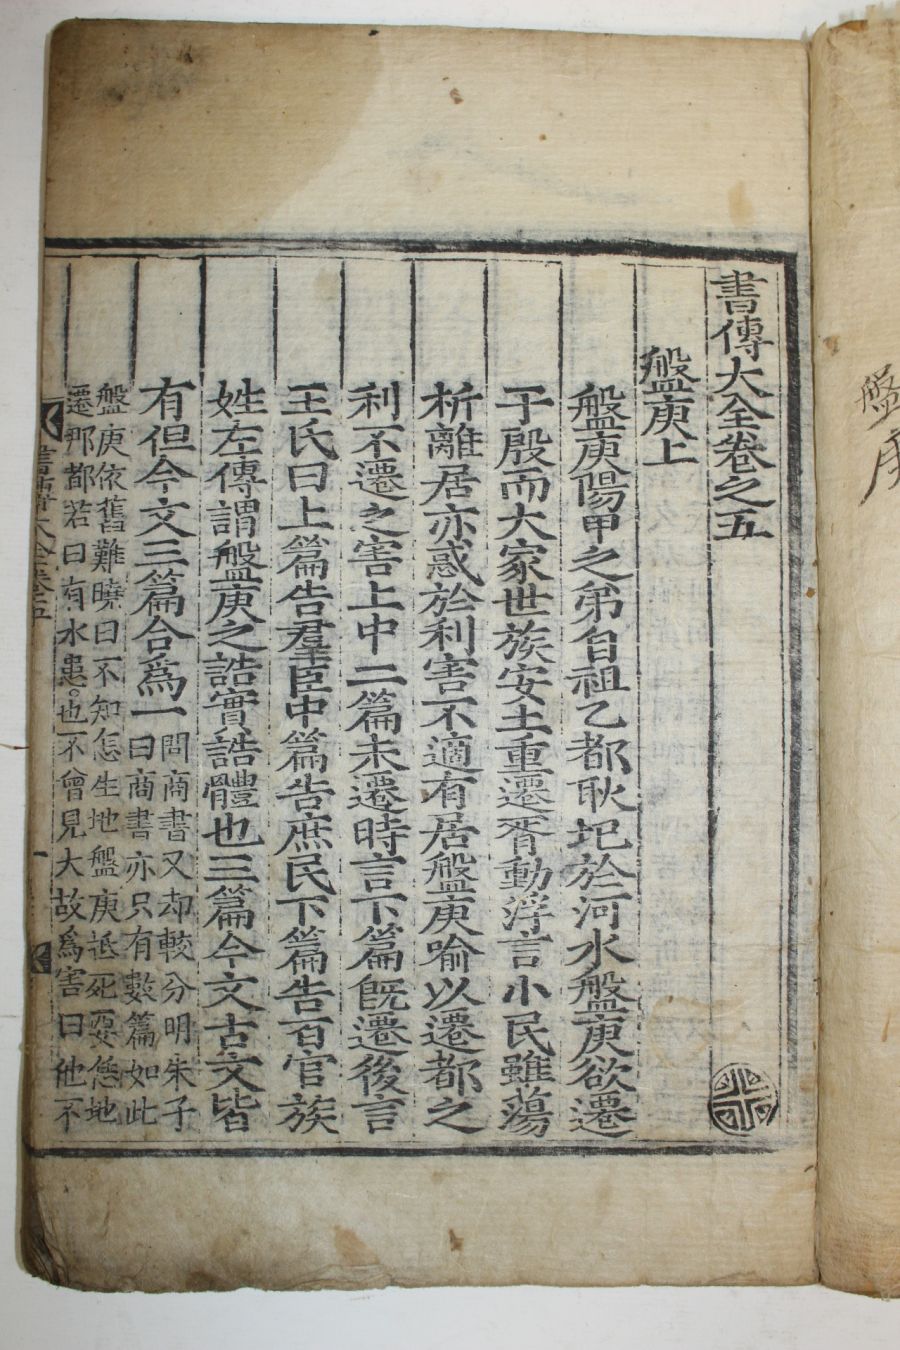 書傳大全卷之五
盤庚上
盤庚陽甲之弟自祖乙都耿圯於河水盤庚欲遷
于殷而大家世族安土重遷胥動浮言小民雖蕩
析離居亦惑於利害不適有居盤庚喻以遷都之
利不遷之害上中二篇未遷時言下篇旣遷後言
王氏曰上篇告羣臣中篇告庶民下篇告百官族
姓左傳謂盤庚之誥實誥體也三篇今文古文皆
有但今文三篇合爲一
問商書又却較分明朱子
曰商書亦只有數篇如此
盤庚依舊難曉曰不知怎生地盤庚抵死要恁地
遷那都若曰有水患也不曾見大故爲害曰他不
書傳大全卷五
一
盤庚